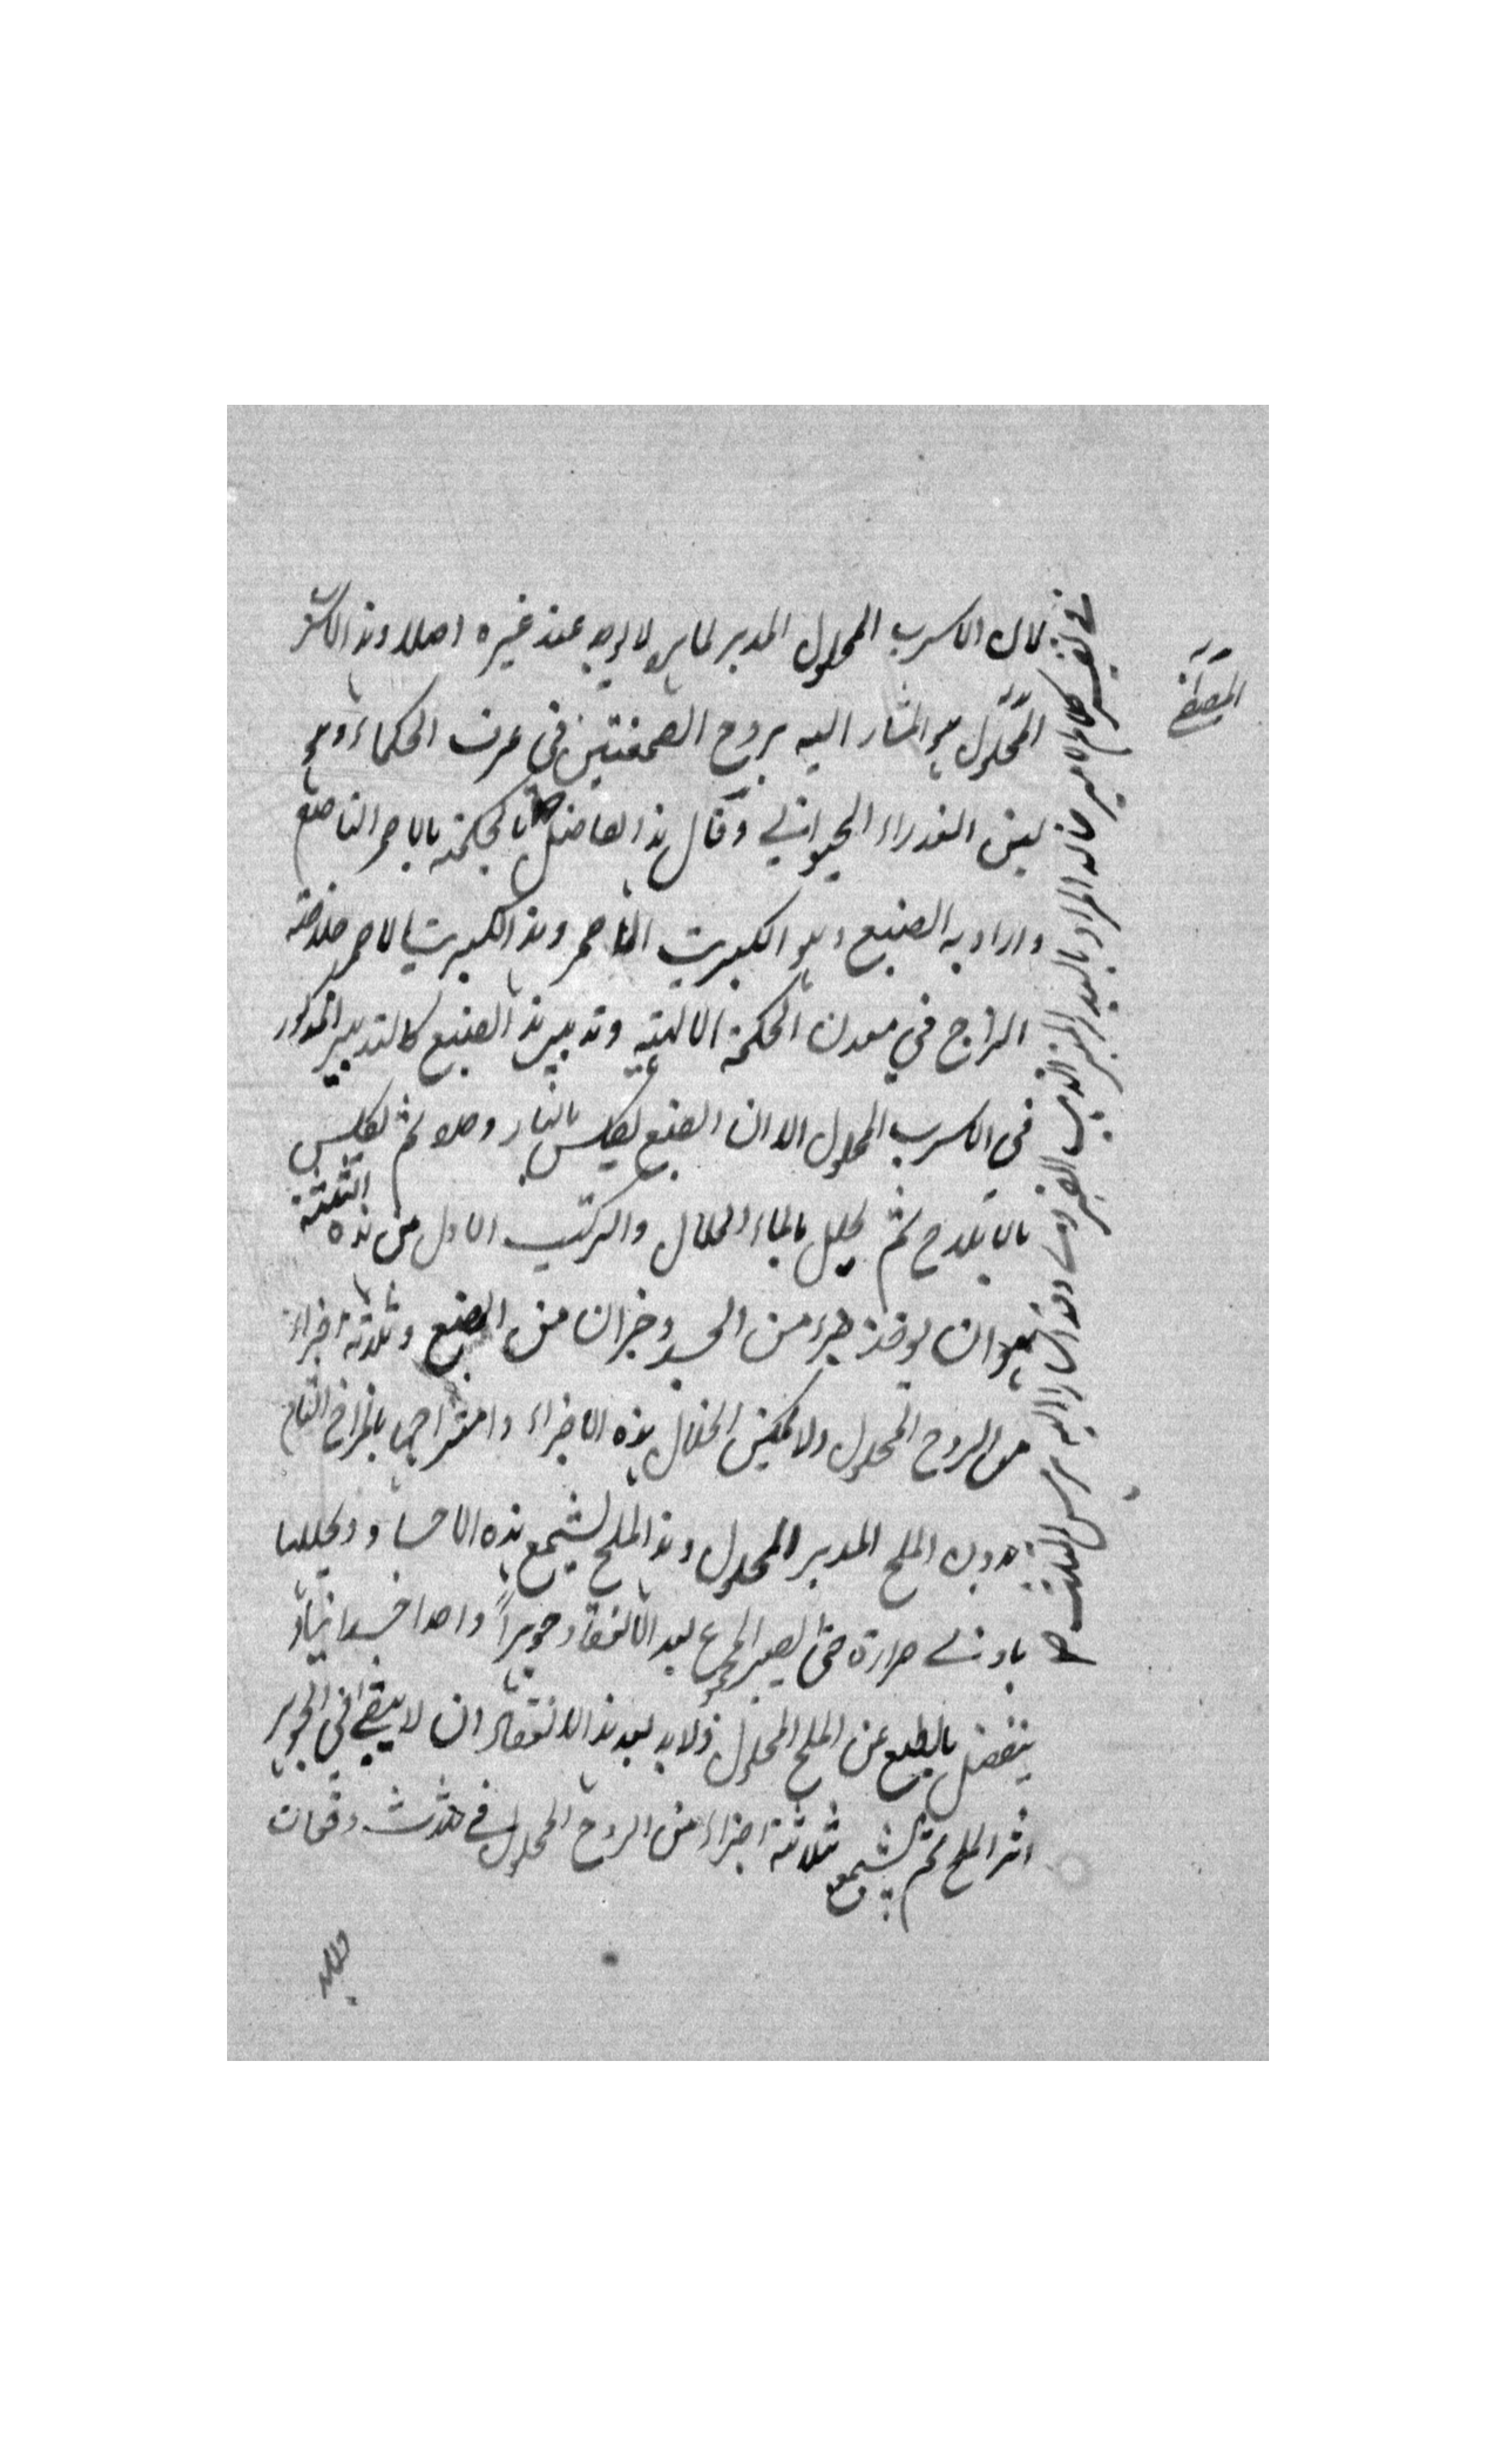 لان الاسرب المحلول المدبر لما بر لا يوجد عند غيره اصلا وهذا الاسرب
المحلول هو المشار اليه بروح الصمغتين في عرف الحكماء وهو
لبن العذراء الحيواني وقال هذا الفاضل بالحكمة بالاحمر الناصع
واراد به الصبغ وهو الكبريت الاحمر وهذا الكبريت الاحمر خلاصة
الزاج في معدن الحكمة الالهية وتدبير هذا الصبغ كالتدبير المذكور
في الاسرب المحلول الا ان الصبغ يكلس بالنار وحده ثم يكلس
بالاملاح ثم يحلل بالماء الحلال والتركيب الاول من هذه الثلثة
هو ان يوخذ جزء من الجسد وجزان من الصبغ وثلاثة اجزاء
من الروح المحلول ولا يمكن انحلال هذه الاجزاء وامتزاجها بالمزاج التام
بدون الملح المدبر المحلول وهذا الملح يشمع هذه الاجساد ويحللها
بادنى حرارة حتى يصير المجموع بعد الانعقاد جوهراً واحدا
ينفصل بالطبع عن الملح المحلول ولا بد بعد هذا الانعقاد ان لا يبقى في الجوهر
اثر الملح ثم يشمع ثلاثة اجزاء من الروح المحلول في ثلاث دفعات
في تفسير كلام الامير خالد المراد بالبيد